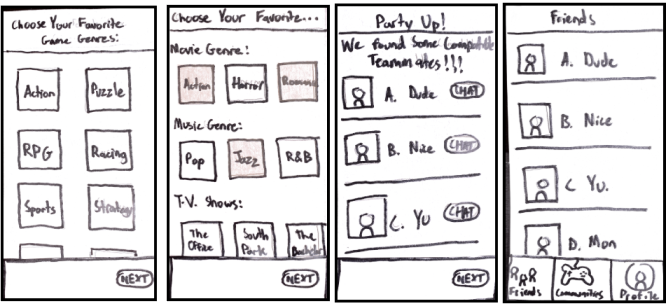 Choose Your Favorite
Game Genres:
Action
Puzzle
RPG
Racing
Sports
Strategy
NEXT
Choose Your Favorite...
Movie Genre:
Action
Horror
Romance
Music Genre:
Pop
Jazz
R&B
T.V. Shows:
The
Office
South
Park
The
Bachelor
NEXT
Party Up!
We found Some Compatible
Teammates!!!
A. Dude CHAT
B. Nice CHAT
C. Yu CHAT
NEXT
Friends
A. Dude
B. Nice
C. Yu.
D. Man
Friends
Communities
Profile